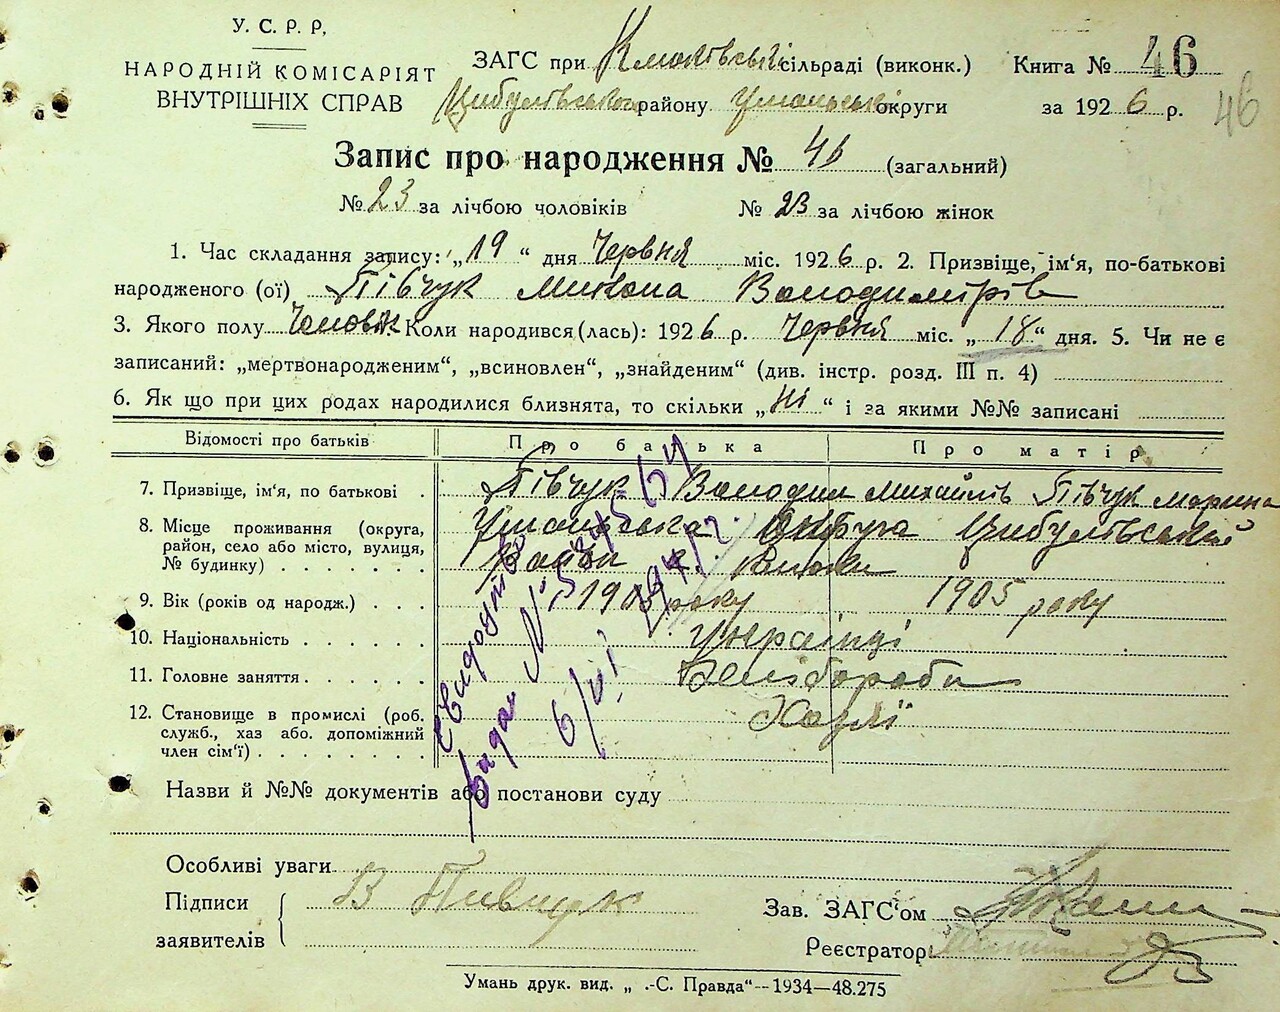 У. С. Р. Р,
НАРОДНІЙ КОМІСАРІЯТ
ВНУТРІШНІХ СПРАВ
ЗАГС при сільраді (виконк.) Книга № 46
Цибулівського району Уманської округи за 1926 р. 46
Запис про народження № 46 (загальний)
№ 23 за лічбою чоловіків № 23 за лічбою жінок
1. Час складання запису: „19“ дня Червня міс. 1926 р. 2. Призвіще, ім'я, по-батькові
народженого (ої) Півчук Микола Володимірів
3. Якого полу Чоловік Коли народився(лась): 1926 р. Червня міс. „18“ дня. 5. Чи не є
записаний: „мертвонародженим“, „всиновлен“, „знайденим“ (див. інстр. розд. III п. 4)
6. Як що при цих родах народилися близнята, то скільки „Ні“ і за якими №№ записані
Відомості про батьків Про батька Про матір
7. Призвіще, ім'я, по батькові Півчук Володим Михайлів Півчук Марина
8. Місце проживання (округа, Уманська Округа Цибулівський
район, село або місто, вулиця,
№ будинку) Район
9. Вік (років од народж.) 1903 року 1905 року
10. Національність Українці
11. Головне заняття Хлібороби
12. Становище в промислі (роб.
служб., хаз або. допоміжний
член сім'ї)
Свидоцтво
видан №
6/VI
Назви й №№ документів або постанови суду
Особливі уваги
Підписи В Пивчук
заявителів
Зав. ЗАГС'ом
Реєстратор
Умань друк. вид. „ .-С. Правда“—1934—48.275